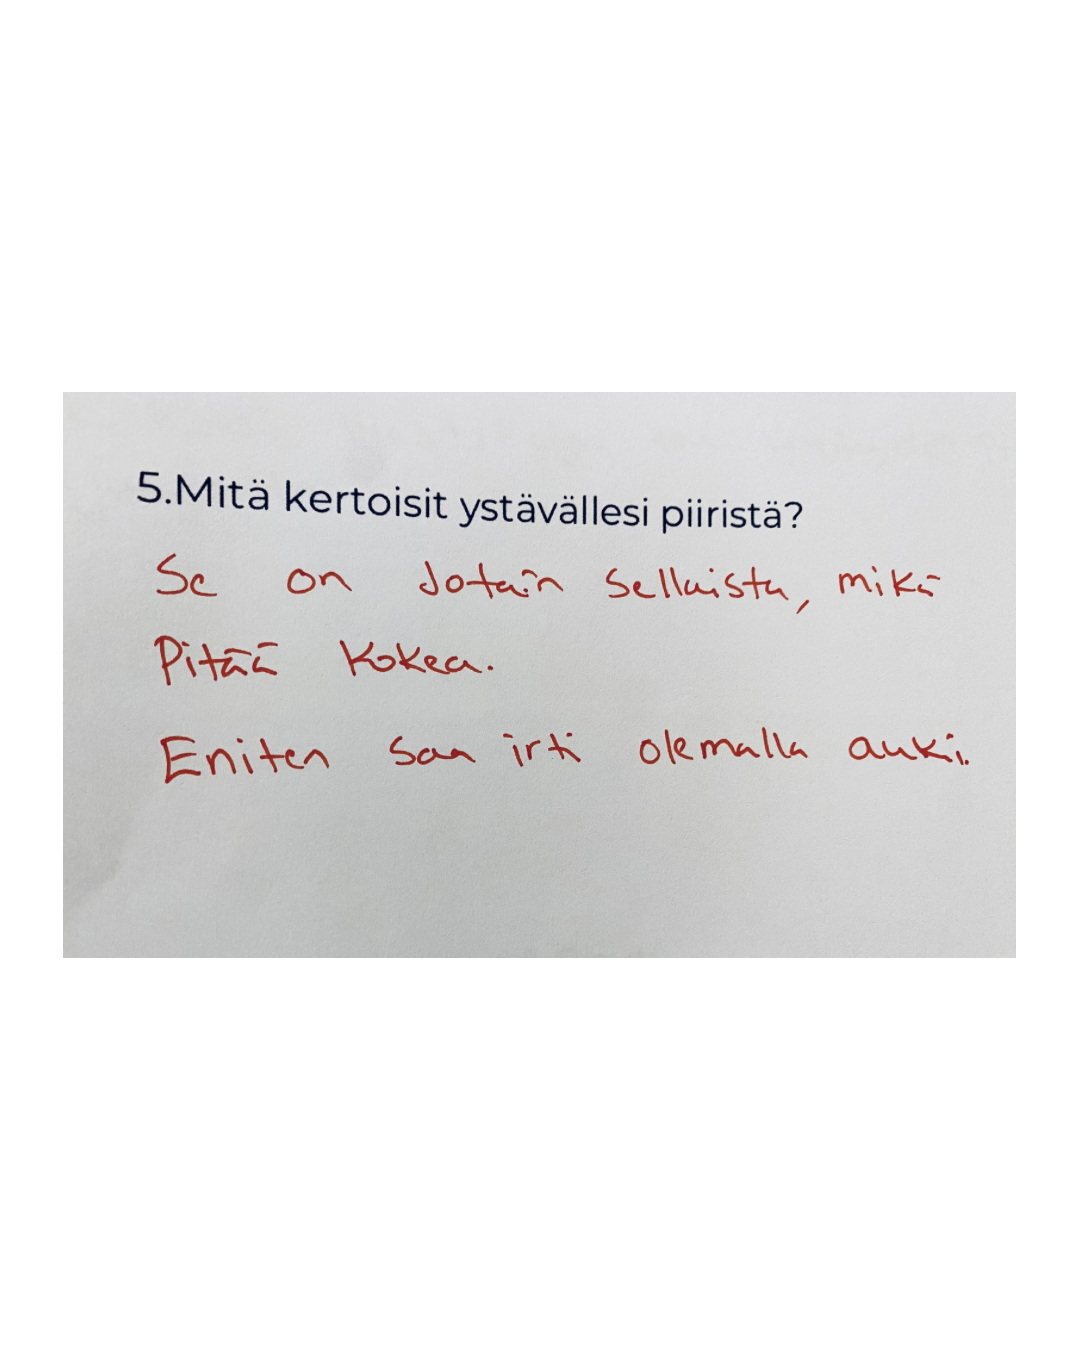 5.Mitä kertoisit ystävällesi piiristä?
Se on Jotain sellaista, mikä
Pitää Kokea.
Eniten saa irti olemalla auki.